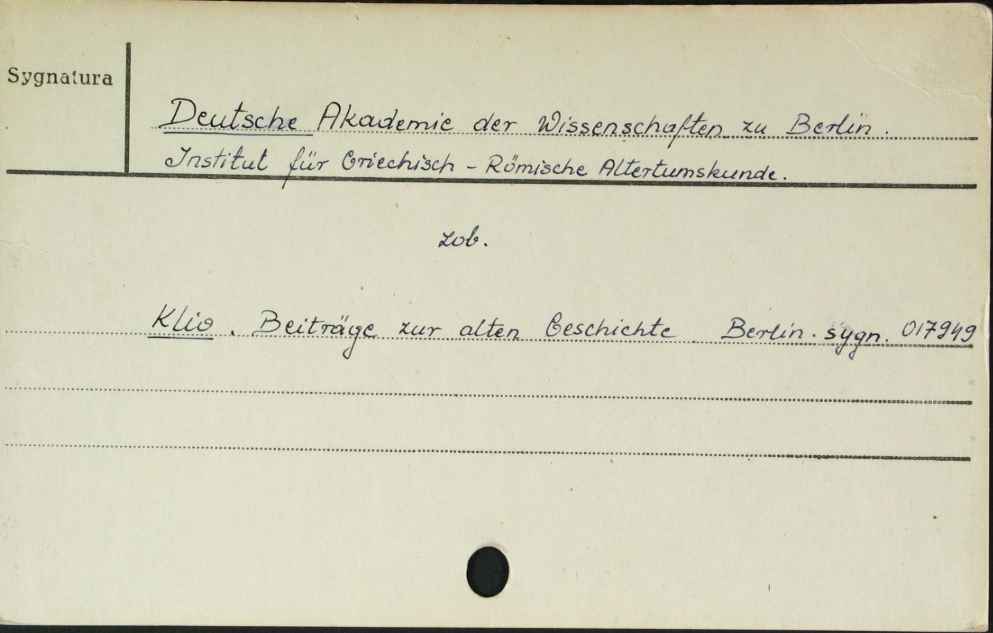 Sygnatura
Deutsche Akademie der Wissenschaften zu Berlin.
Institut für Griechisch - Römische Altertumskunde.
zob.
Klio. Beiträge zur alten Geschichte. Berlin. sygn. 017949